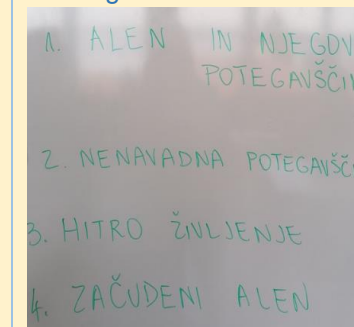 1. ALEN IN NJEGOV
POTEGAVŠČI
2. NENAVADNA POTEGAVŠČ
3. HITRO ŽIVLJENJE
4. ZAČUDENI ALEN